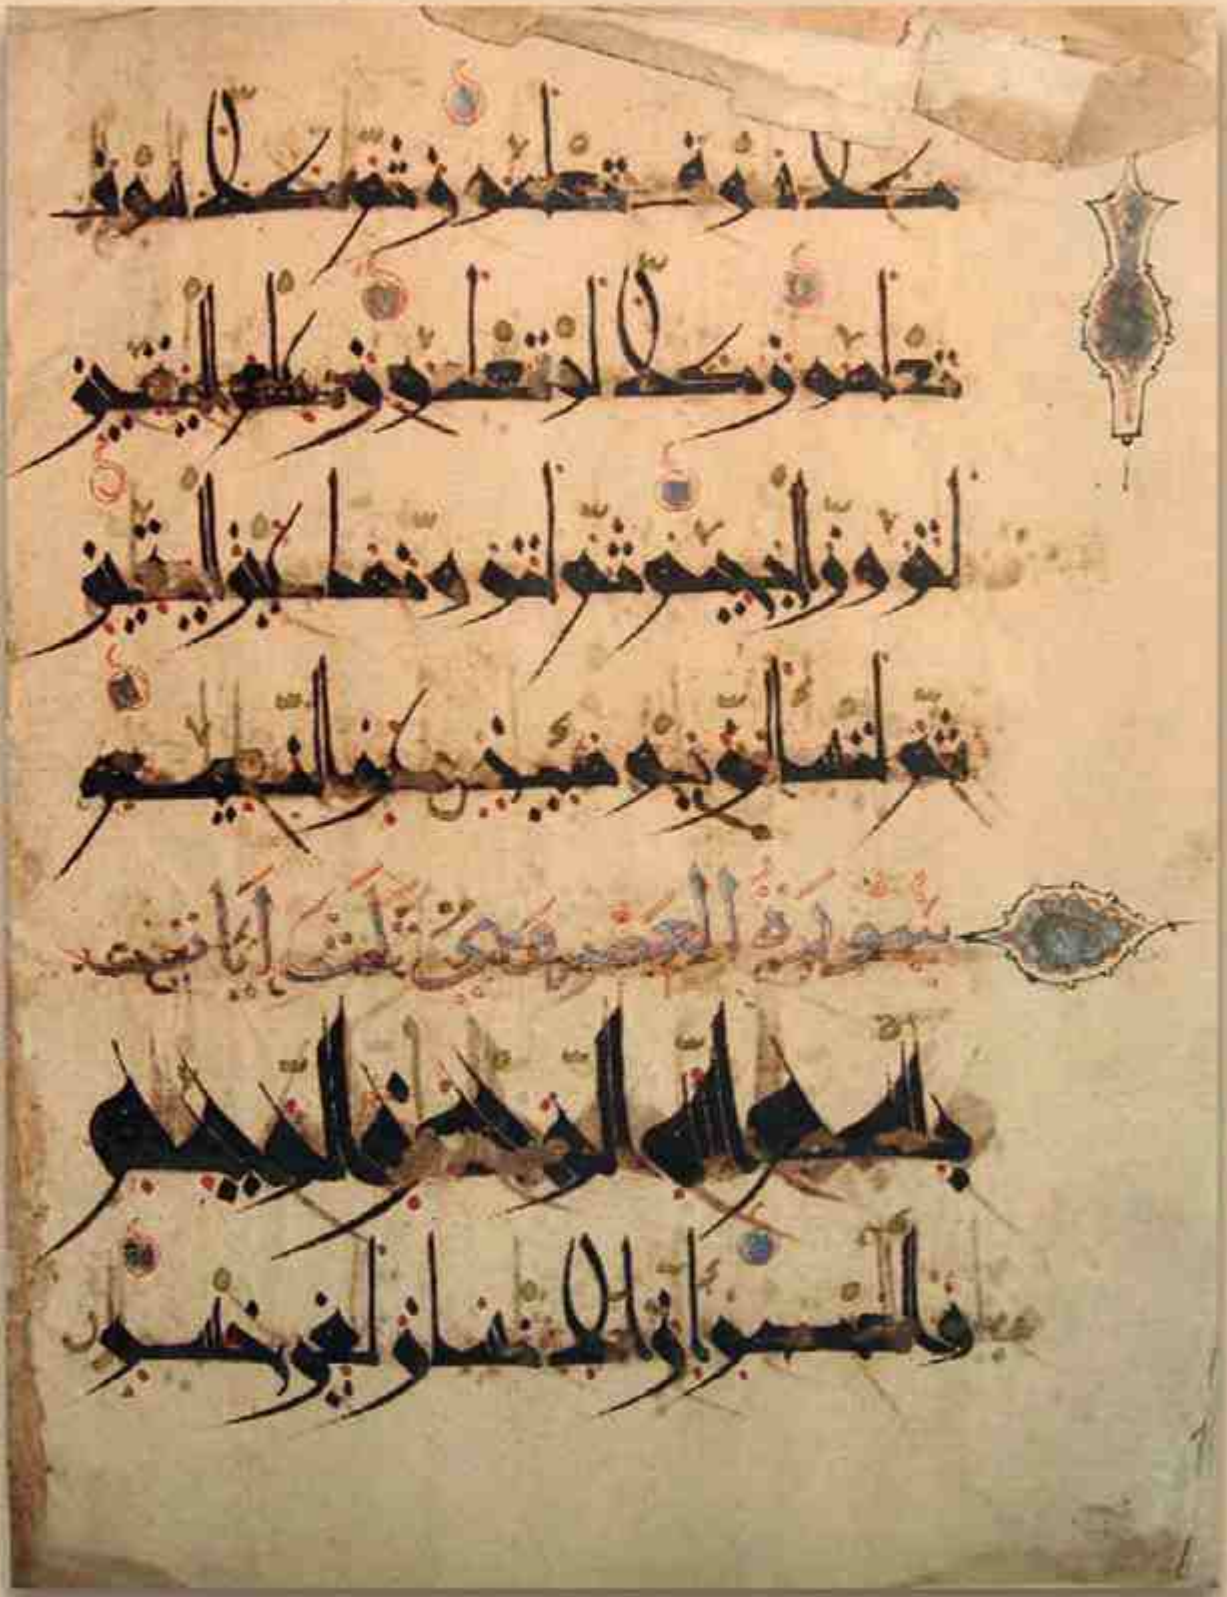 كلا سوف تعلمون ثم كلا سوف
تعلمون كلا لو تعلمون علم اليقين
لترون الجحيم ثم لترونها عين اليقين
ثم لتسلن يومئذ عن النعيم
سورة العصر وهي ثلث ايات
بسم الله الرحمن الرحيم
والعصر ان الانسان لفي خسر